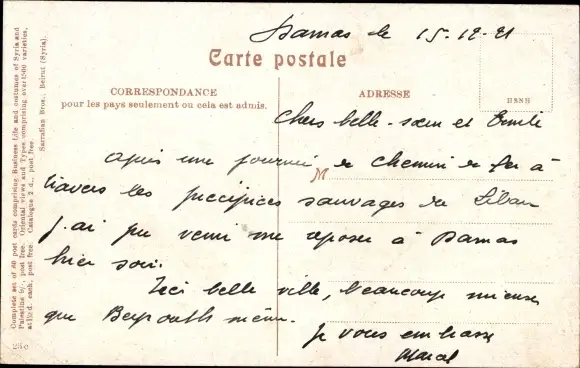 Damas le 15-12-21
Carte postale
CORRESPONDANCE
pour les pays seulement ou cela est admis.
ADRESSE
Chers belle-sœur et Emile
Après une journée de chemin de fer à
travers les précipices sauvages du Liban
j'ai pu venir me reposer à Damas
hier soir.
Ici belle ville, beaucoup mieux
que Beyrouth même.
Je vous embrasse
Marcel
Complete set of 60 post cards comprising Business Life and costumes of Syria and
Palestine 5/, post free. Oriental views and Types comprising over 1500 varieties,
post free. Catalogue 2 d., post free.
Sarrafian Bros., Beirut (Syria).